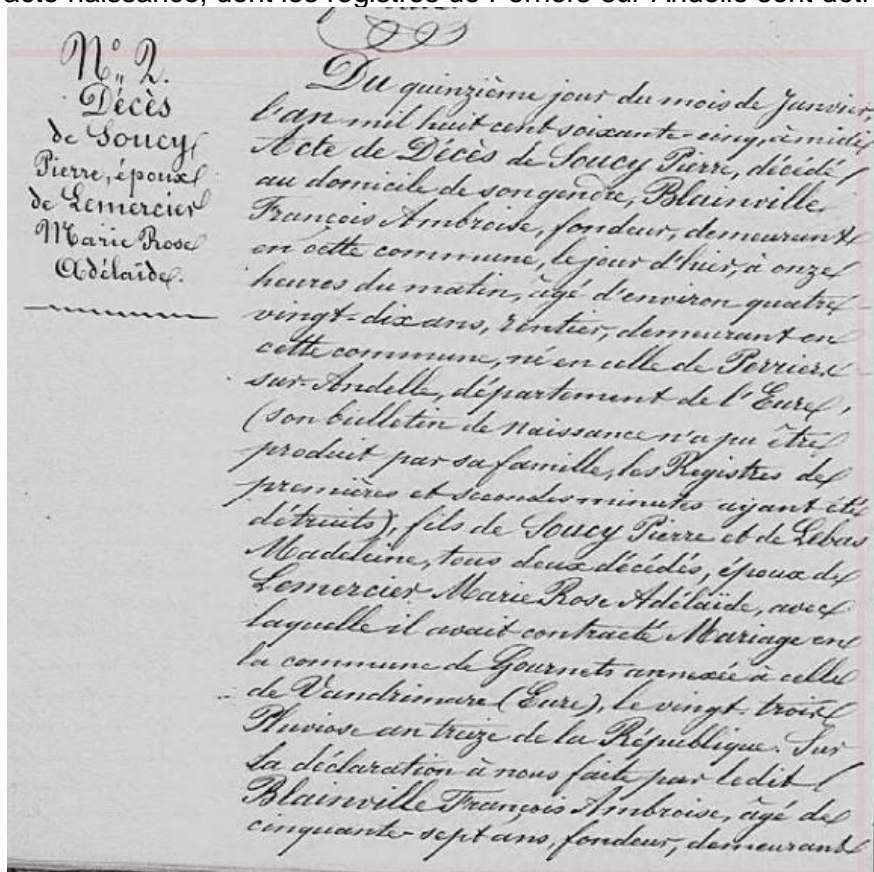 acte naissance, dont les registres de Perriers-sur-Andelle sont détr
N° 2.
Décès
de Soucy
Pierre, époux
de Lemercier
Marie Rose
Adélaïde.
Du quinzième jour du mois de Janvier,
l'an mil huit cent soixante-cinq, à midi
Acte de Décès de Soucy Pierre, décédé
au domicile de son gendre, Blainville
François Ambroise, fondeur, demeurant
en cette commune, le jour d'hier, à onze
heures du matin, âgé d'environ quatre-
vingt-dix ans, rentier, demeurant en
cette commune, né en celle de Perriers-
sur-Andelle, département de l'Eure,
(son bulletin de naissance n'a pu être
produit par sa famille, les Registres de
premières et secondes minutes ayant été
détruits), fils de Soucy Pierre et de Lebas
Madeleine, tous deux décédés, époux de
Lemercier Marie Rose Adélaïde, avec
laquelle il avait contracté Mariage en
la commune de Gournets annexée à celle
de Vandrimare (Eure), le vingt-trois
Pluviose an treize de la République. Sur
la déclaration à nous faite par ledit
Blainville François Ambroise, âgé de
cinquante-sept ans, fondeur, demeurant